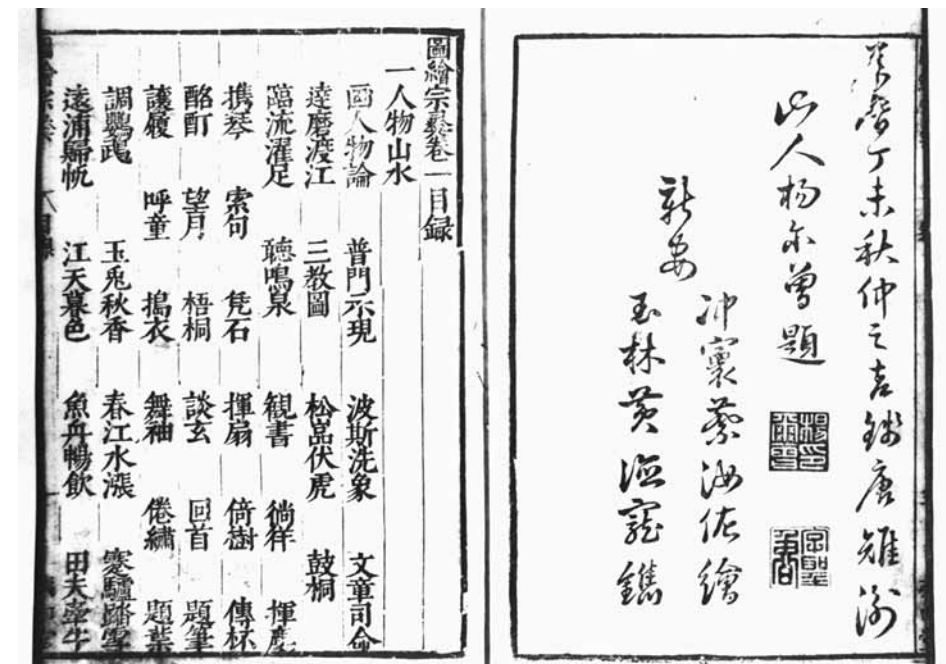 萬曆丁未秋仲之吉錢唐雉衡
山人杨尔曾題
新安
冲寰蔡汝佐繪
玉林黃德寵鐫
圖繪宗彝卷一目録
一人物山水
畫人物論 普門示現 波斯洗象 文章司命
達磨渡江 三教圖 松嵓伏虎 鼓桐
臨流濯足 聽鳴泉 観書 徜徉 揮麈
携琴 索句 凭石 揮扇 倚樹 傳杯
酩酊 望月 梧桐 談玄 回首 題筆
護履 呼童 搗衣 舞袖 倦繡 題葉
調鸚鵡 玉兎秋香 春江水漲 蹇驢踏雪
遠浦歸帆 江天暮色 魚舟暢飲 田夫牽牛